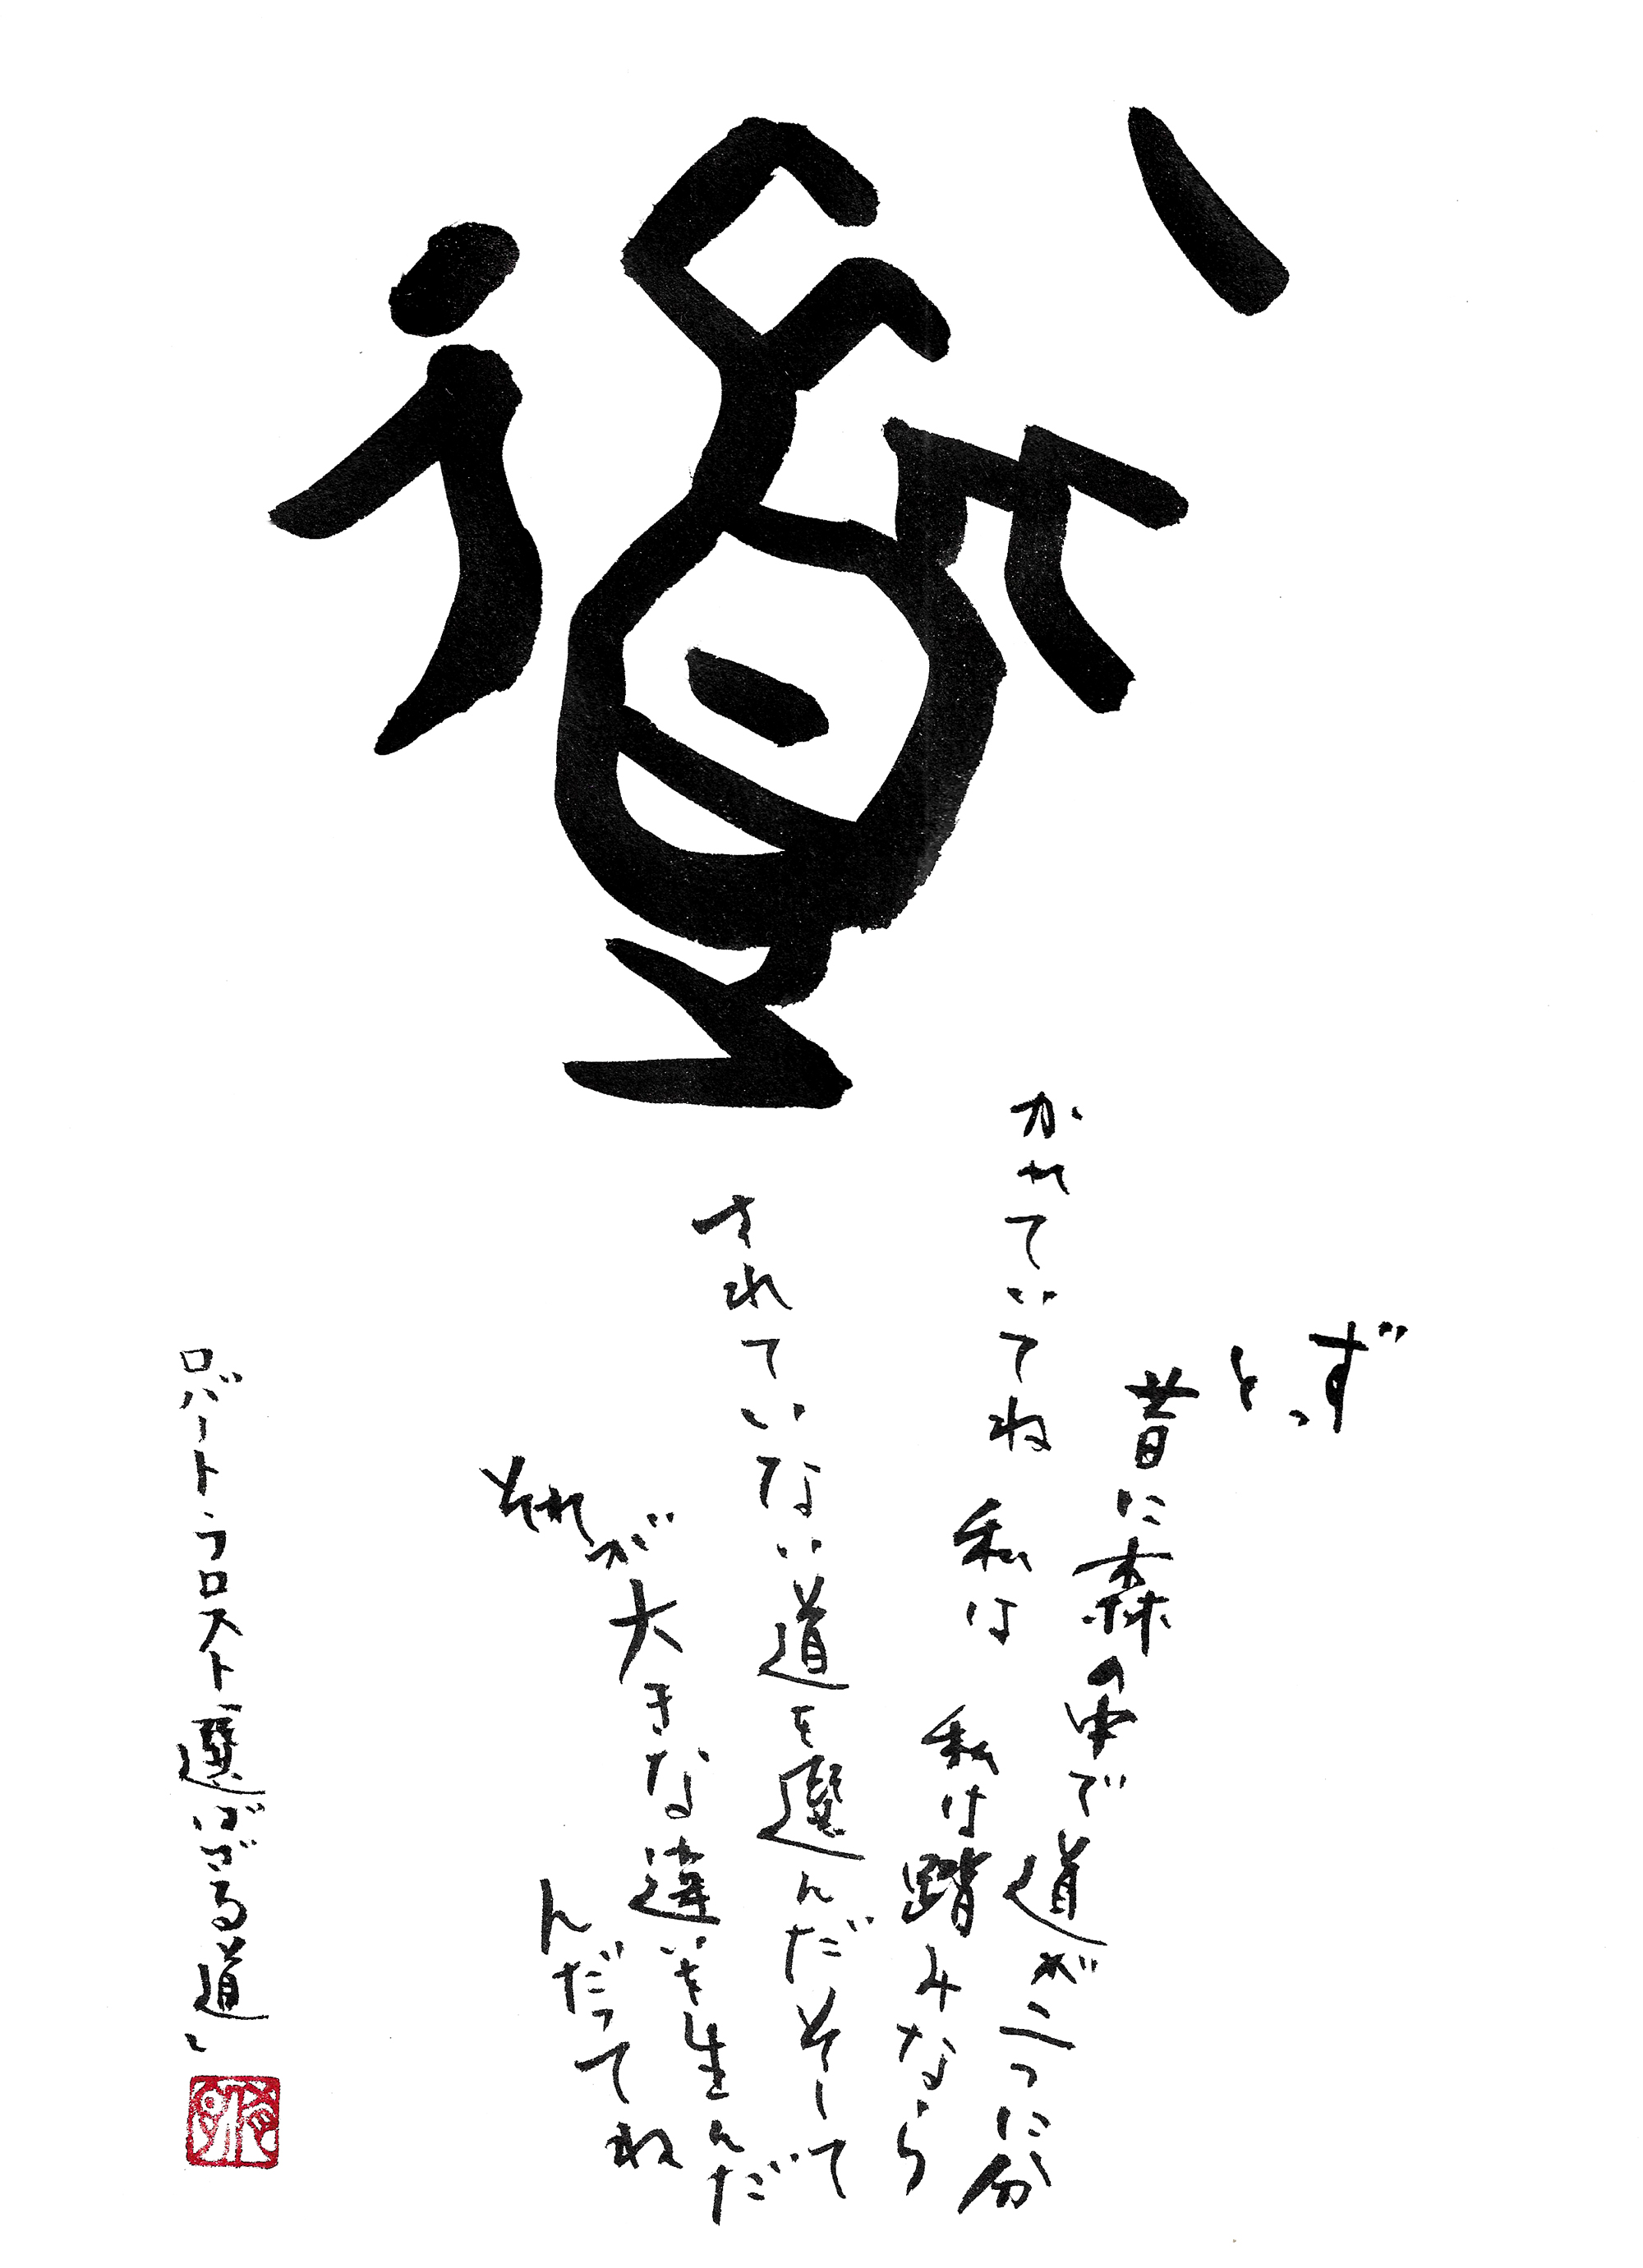 道
ずっと
昔に森の中で道が二つに分
かれていてね 私は 私は踏みなら
されていない道を選んだそして
それが大きな違いを生んだ
んだってね
ロバート・フロスト「選ばざる道」